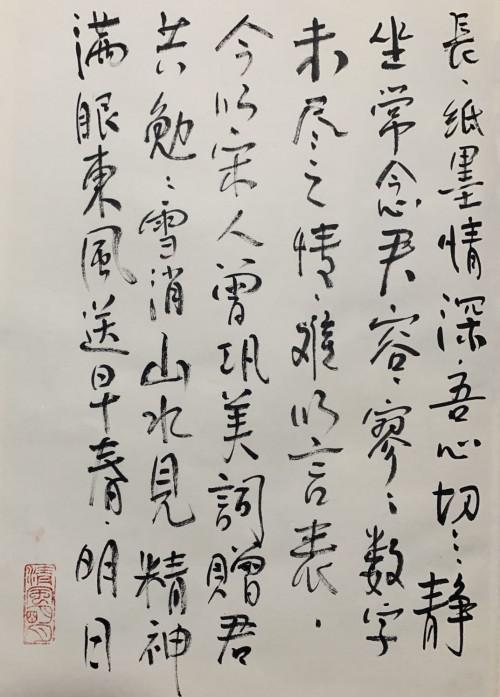 長、紙墨情深、吾心切…静
坐常念君容、寥〻数字
未尽之情、難以言表.
今以宋人曾巩美詞贈君
共勉:雪消山水見精神
满眼東風送早春、明日